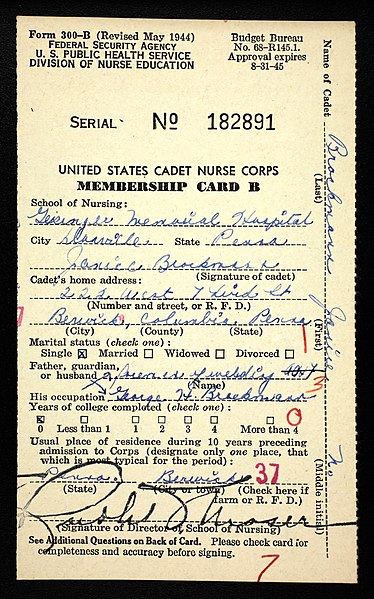 Form 300-B (Revised May 1944)
FEDERAL SECURITY AGENCY
U. S. PUBLIC HEALTH SERVICE
DIVISION OF NURSE EDUCATION
Budget Bureau
No. 68-R145.1.
Approval expires
8-31-45
SERIAL No 182891
UNITED STATES CADET NURSE CORPS
MEMBERSHIP CARD B
School of Nursing:
Geisinger Memorial Hospital
City Danville State Penna
Janice Brockmann
(Signature of cadet)
Cadet's home address:
West St
(Number and street, or R. F. D.)
Berwick, Columbia, Penna
(City) (County) (State)
Marital status (check one):
Single x Married Widowed Divorced
Father, guardian,
or husband
(Name)
His occupation George H. Brockmann
Years of college completed (check one):
0 Less than 1 1 2 3 4 More than 4
0
Usual place of residence during 10 years preceding
admission to Corps (designate only one place, that
which is most typical for the period):
Penna Berwick 37
(State) (City or town) (Check here if
farm or R. F. D.)
(Signature of Director of School of Nursing)
See Additional Questions on Back of Card. Please check card for
completeness and accuracy before signing.
7
Name of Cadet Brockmann Janice no
(Last) (First) (Middle initial)
1
3